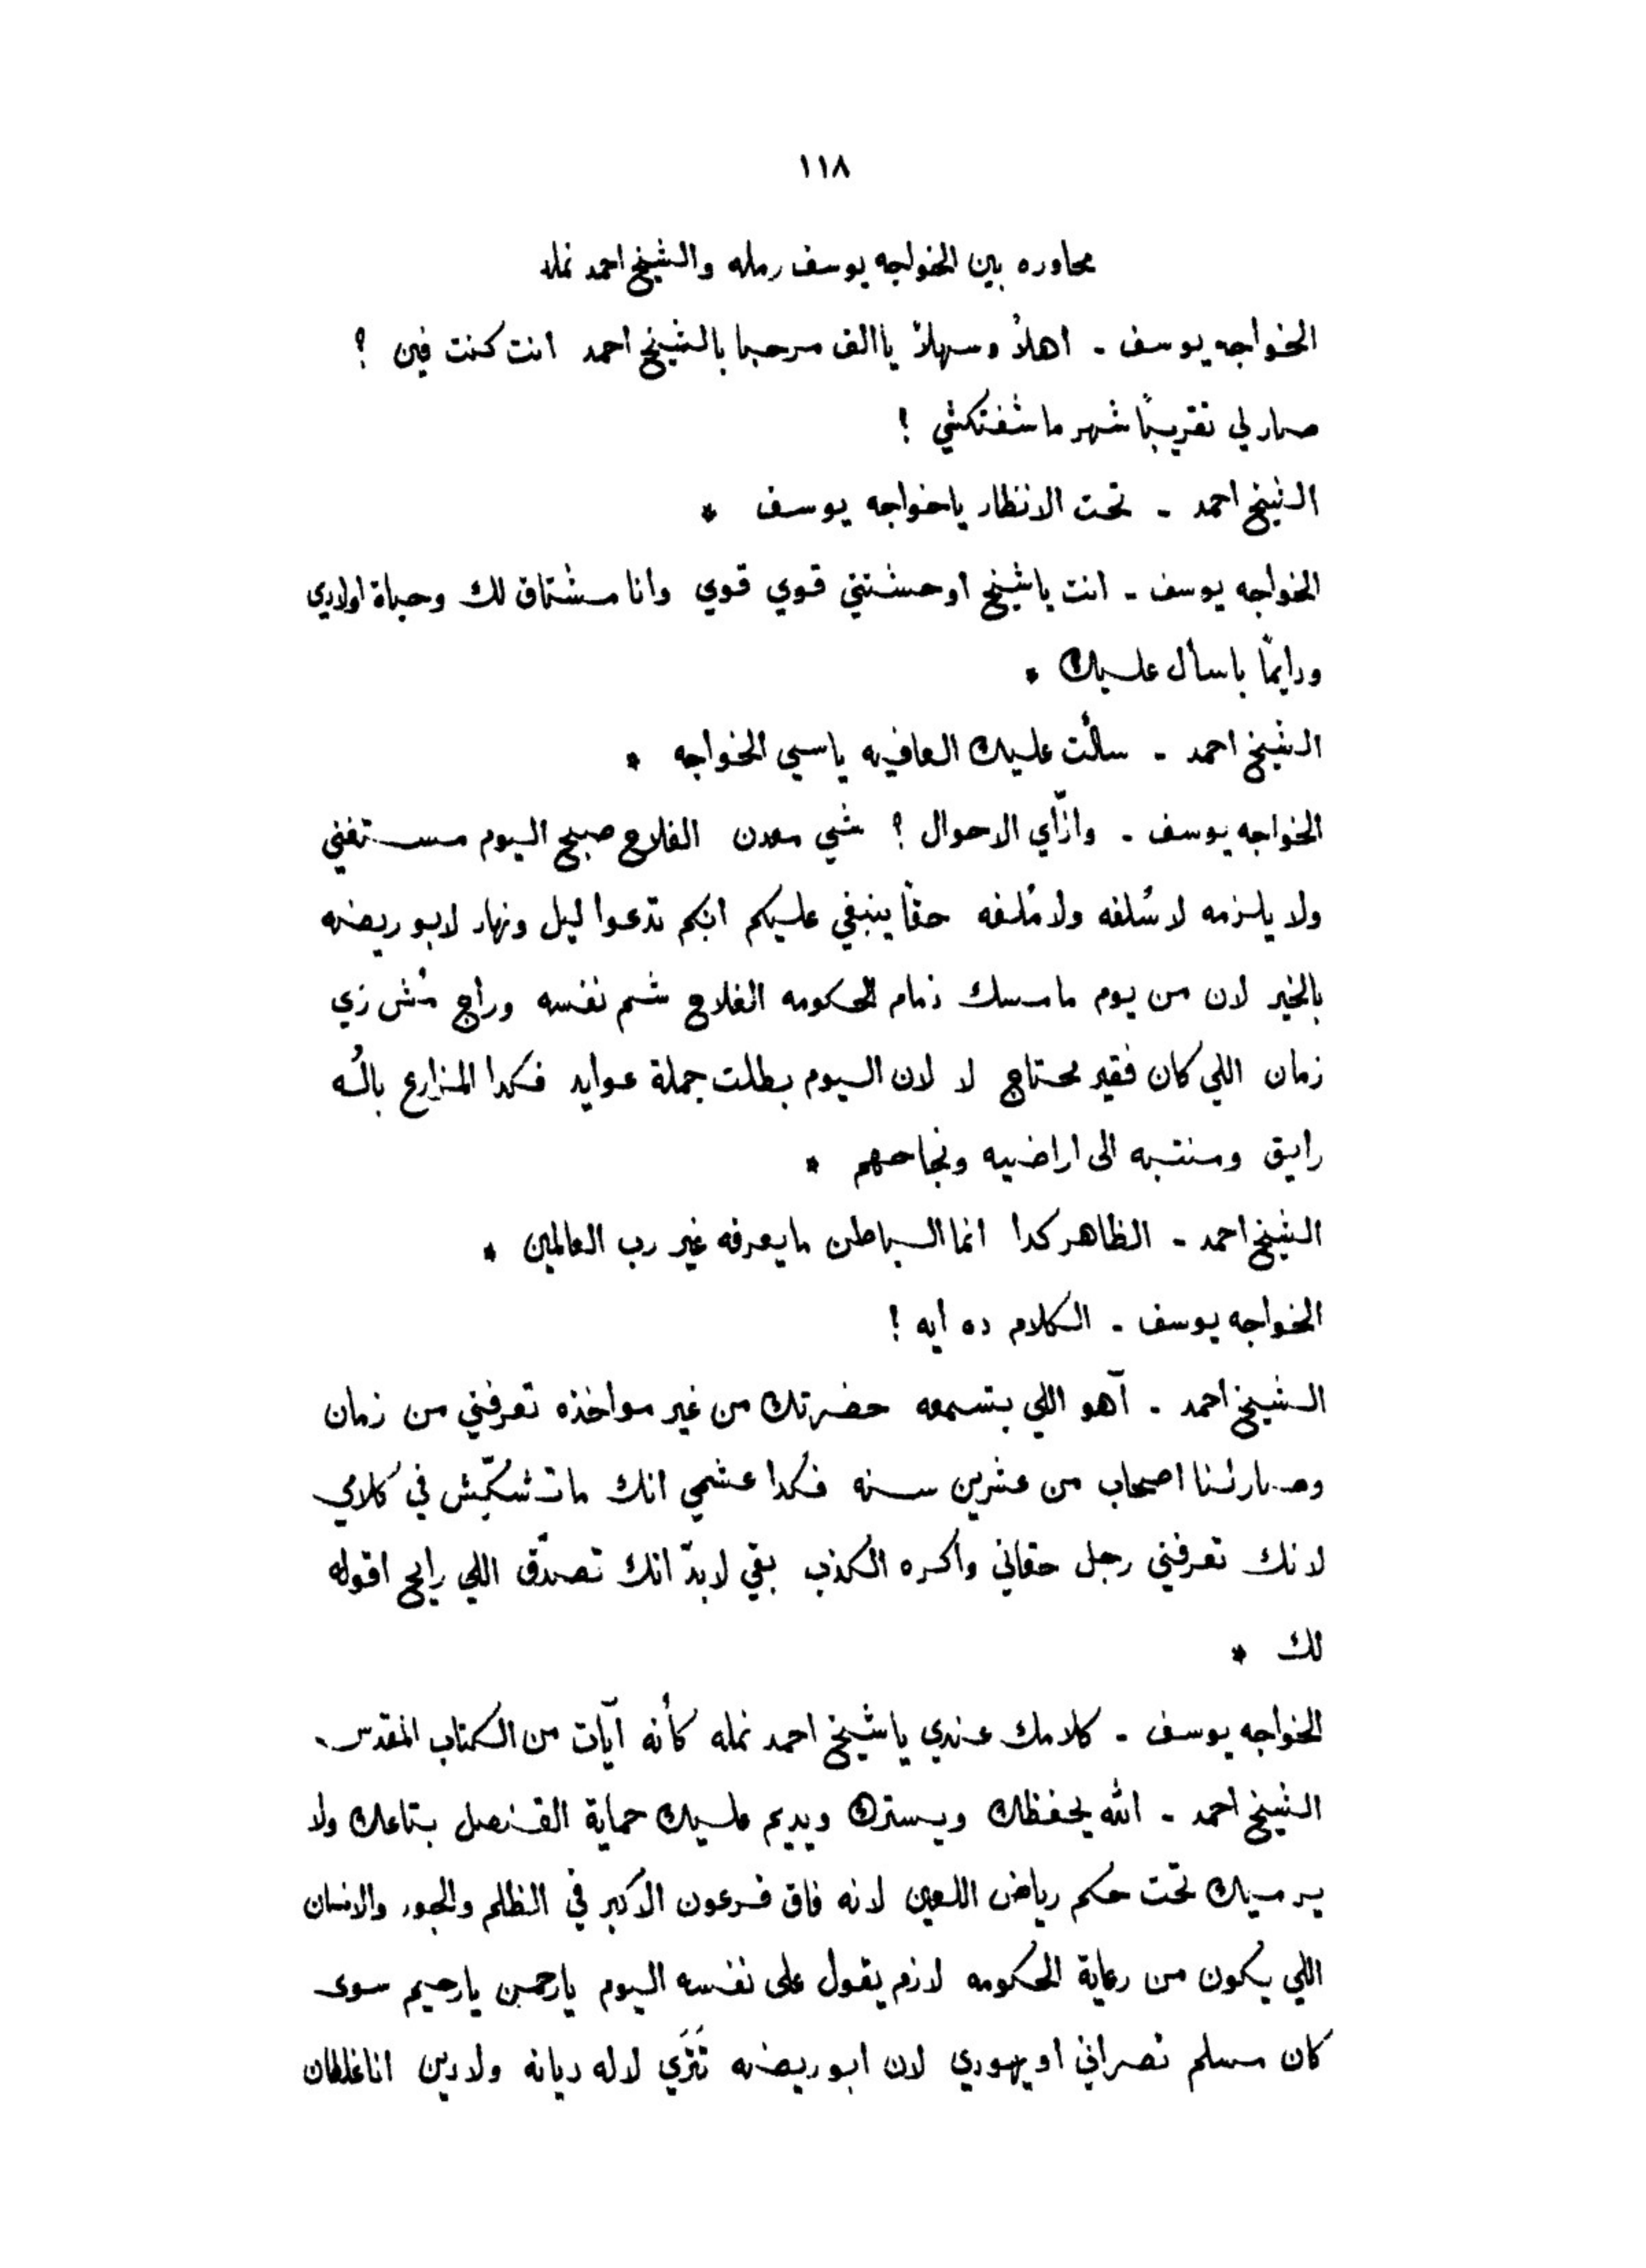 ١١٨
محاوره بين الخواجه يوسف رمله والشيخ احمد نمله
الخواجه يوسف - اهلاً وسهلاً ياالف مرحبا بالشيخ احمد انت كنت فين ؟
صار لي تقريباً شهر ما شفتكشي !
الشيخ احمد - تحت الانظار ياخواجه يوسف *
الخواجه يوسف - انت ياشيخ اوحشتني قوي قوي وانا مشتاق لك وحياة اولادي
ودايماً باسأل عليك *
الشيخ احمد - سألت عليك العافيه ياسي الخواجه *
الخواجه يوسف - وازّاي الاحوال ؟ شي معدن الفلاح صبح اليوم مستغني
ولا يلزمه لا سُلفه ولا مُلفه حقاً ينبغي عليكم انكم تدعوا ليل ونهار لابو ريضه
بالخير لان من يوم ما مسك زمام الحكومه الفلاح شم نفسه وراج مُش زي
زمان اللي كان فقير محتاج لا لان اليوم بطلت جملة عوايد فكدا المزارع بالُه
رايق ومنتبه الى اراضيه ونجاحهم *
الشيخ احمد - الظاهر كدا انما الباطن ما يعرفه غير رب العالمين *
الخواجه يوسف - الكلام ده ايه !
الشيخ احمد - آهو اللي بتسمعه حضرتك من غير مواخذه تعرفني من زمان
وصار لنا اصحاب من عشرين سنه فكدا عشمي انك ما تشكّش في كلامي
لانك تعرفني رجل حقاني واكره الكذب بقي لا بدّ انك تصدّق اللي رايح اقوله
لك *
الخواجه يوسف - كلامك عندي ياشيخ احمد نمله كأنه آيات من الكتاب المقدس.
الشيخ احمد - الله يحفظك ويسترك ويديم عليك حماية القنصل بتاعك ولا
يرميك تحت حكم رياض اللعين لانه فاق فرعون الاكبر في الظلم والجور والانسان
اللي يكون من رعاية الحكومه لازم يقول على نفسه اليوم يارحمن يارحيم سوى
كان مسلم نصراني او يهودي لان ابو ريضه تَتَري لا له ديانه ولا دين انا غلطان